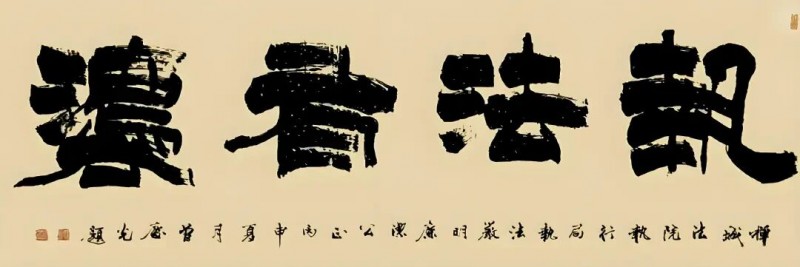 執法者
禪城法院執行局執法嚴明廉潔公正丙申夏月曾光題